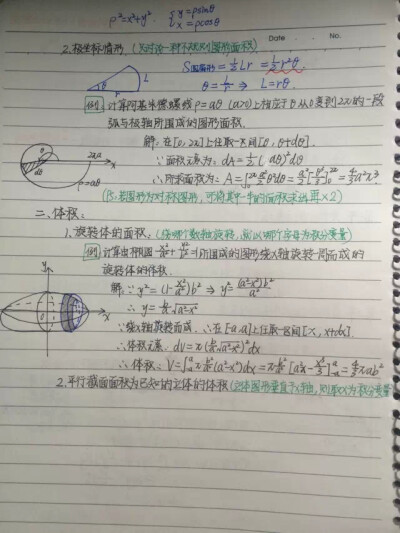 ρ²=x²+y². { y=ρsinθ
x=ρcosθ
Date No.
2.极坐标情形.
S圆扇形=½Lr=½r²θ
θ=L/r ⇒ L=rθ.
例:计算阿基米德螺线ρ=aθ (a>0)上相应于θ从0变到2π的一段
弧与极轴所围成的图形面积.
解:在[0,2π]上任取一区间[θ,θ+dθ].
∵面积元素为:dA=½(aθ)²dθ
∴所求面积为:A=∫₀^{2π} a²/2 θ²dθ=a²/2[θ³/3]₀^{2π}=4/3a²π³
(PS:若图形为对称图形,可将其中一半的面积求出再×2)
二、体积:
1.旋转体的体积:(绕哪个轴旋转,就以哪个字母为积分变量)
例:计算由椭圆 x²/a²+y²/b²=1所围成的图形绕x轴旋转一周而成的
旋转体的体积.
解:∵y²=(1-x²/a²)b² ⇒ y²=(a²-x²)b²/a²
∴y=b/a√a²-x²
∵绕x轴旋转而成,∴在[-a,a]上任取一区间[x,x+dx].
∴体积元素:dV=π(b/a√a²-x²)²dx
∴体积:V=∫₋ₐᵃπb²/a²(a²-x²)dx=πb²/a²[a²x-x³/3]₋ₐᵃ=4/3πab²
2.平行截面面积为已知的立体的体积(立体图形垂直于x轴,则取x为积分变量